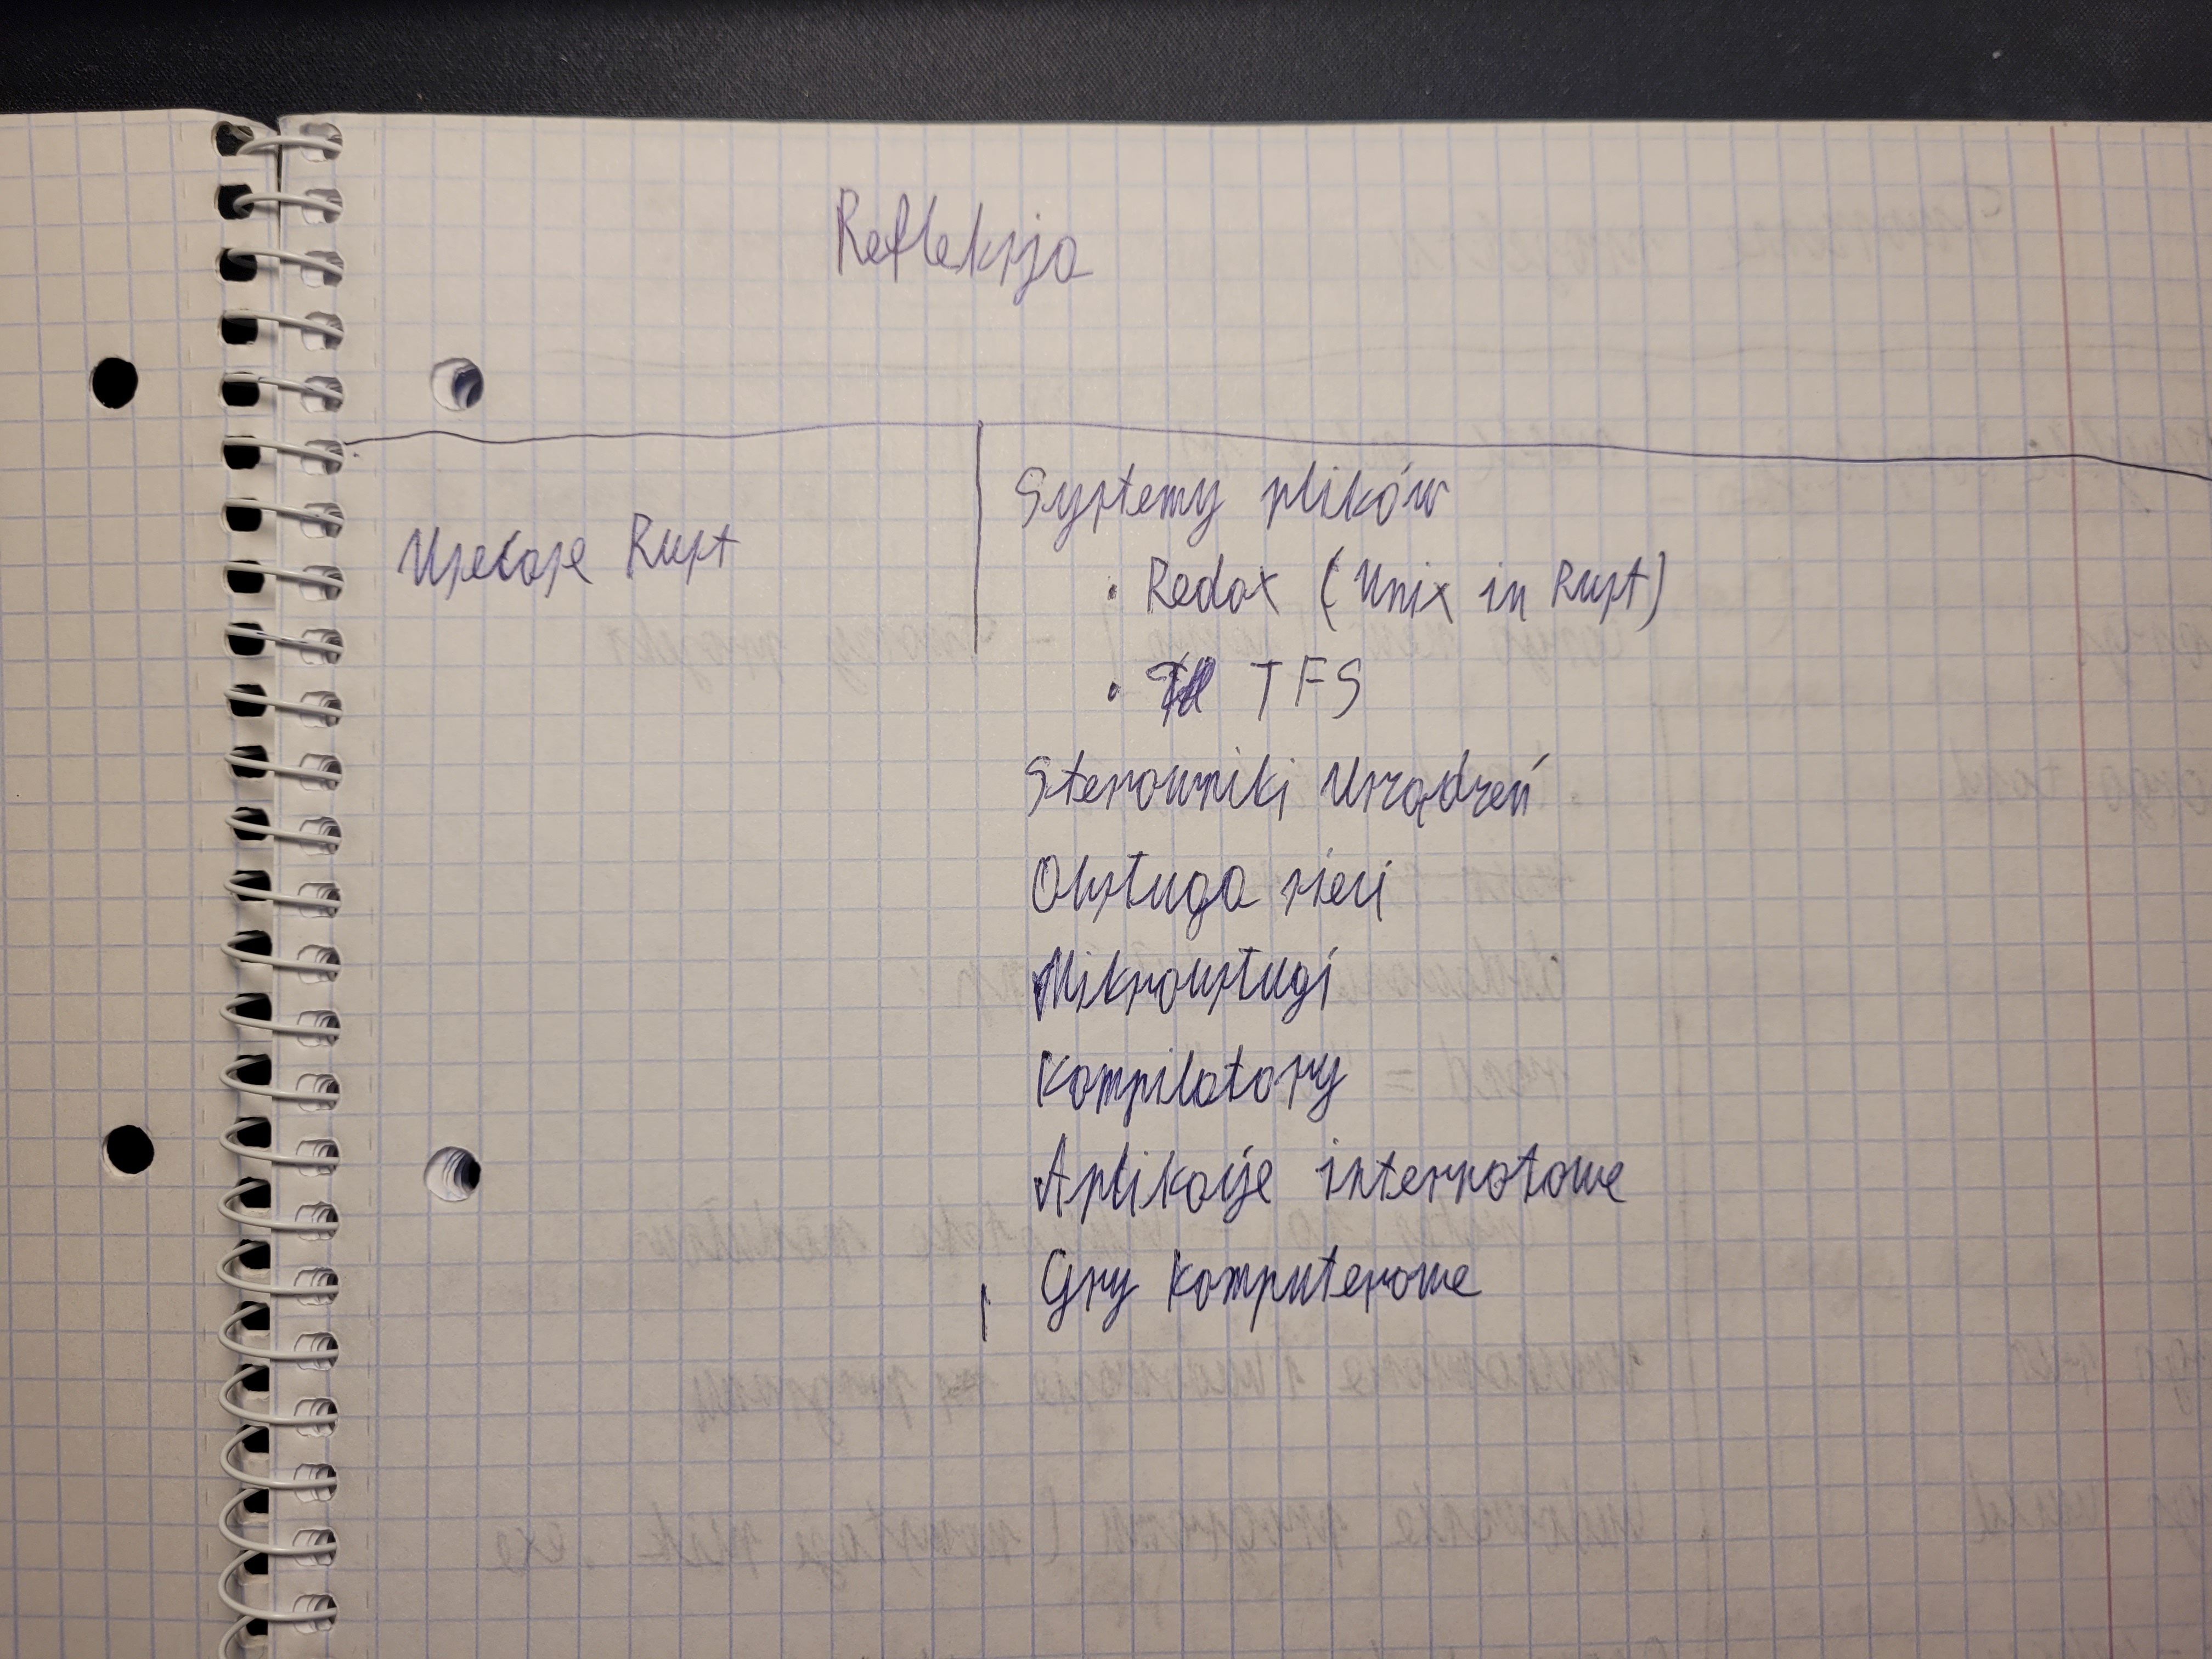 Refleksja
Use Case Rust
Systemy plików
• Redox (Unix in Rust)
• TFS
Sterowniki urządzeń
Obsługa sieci
Mikrousługi
Kompilatory
Aplikacje internetowe
Gry komputerowe